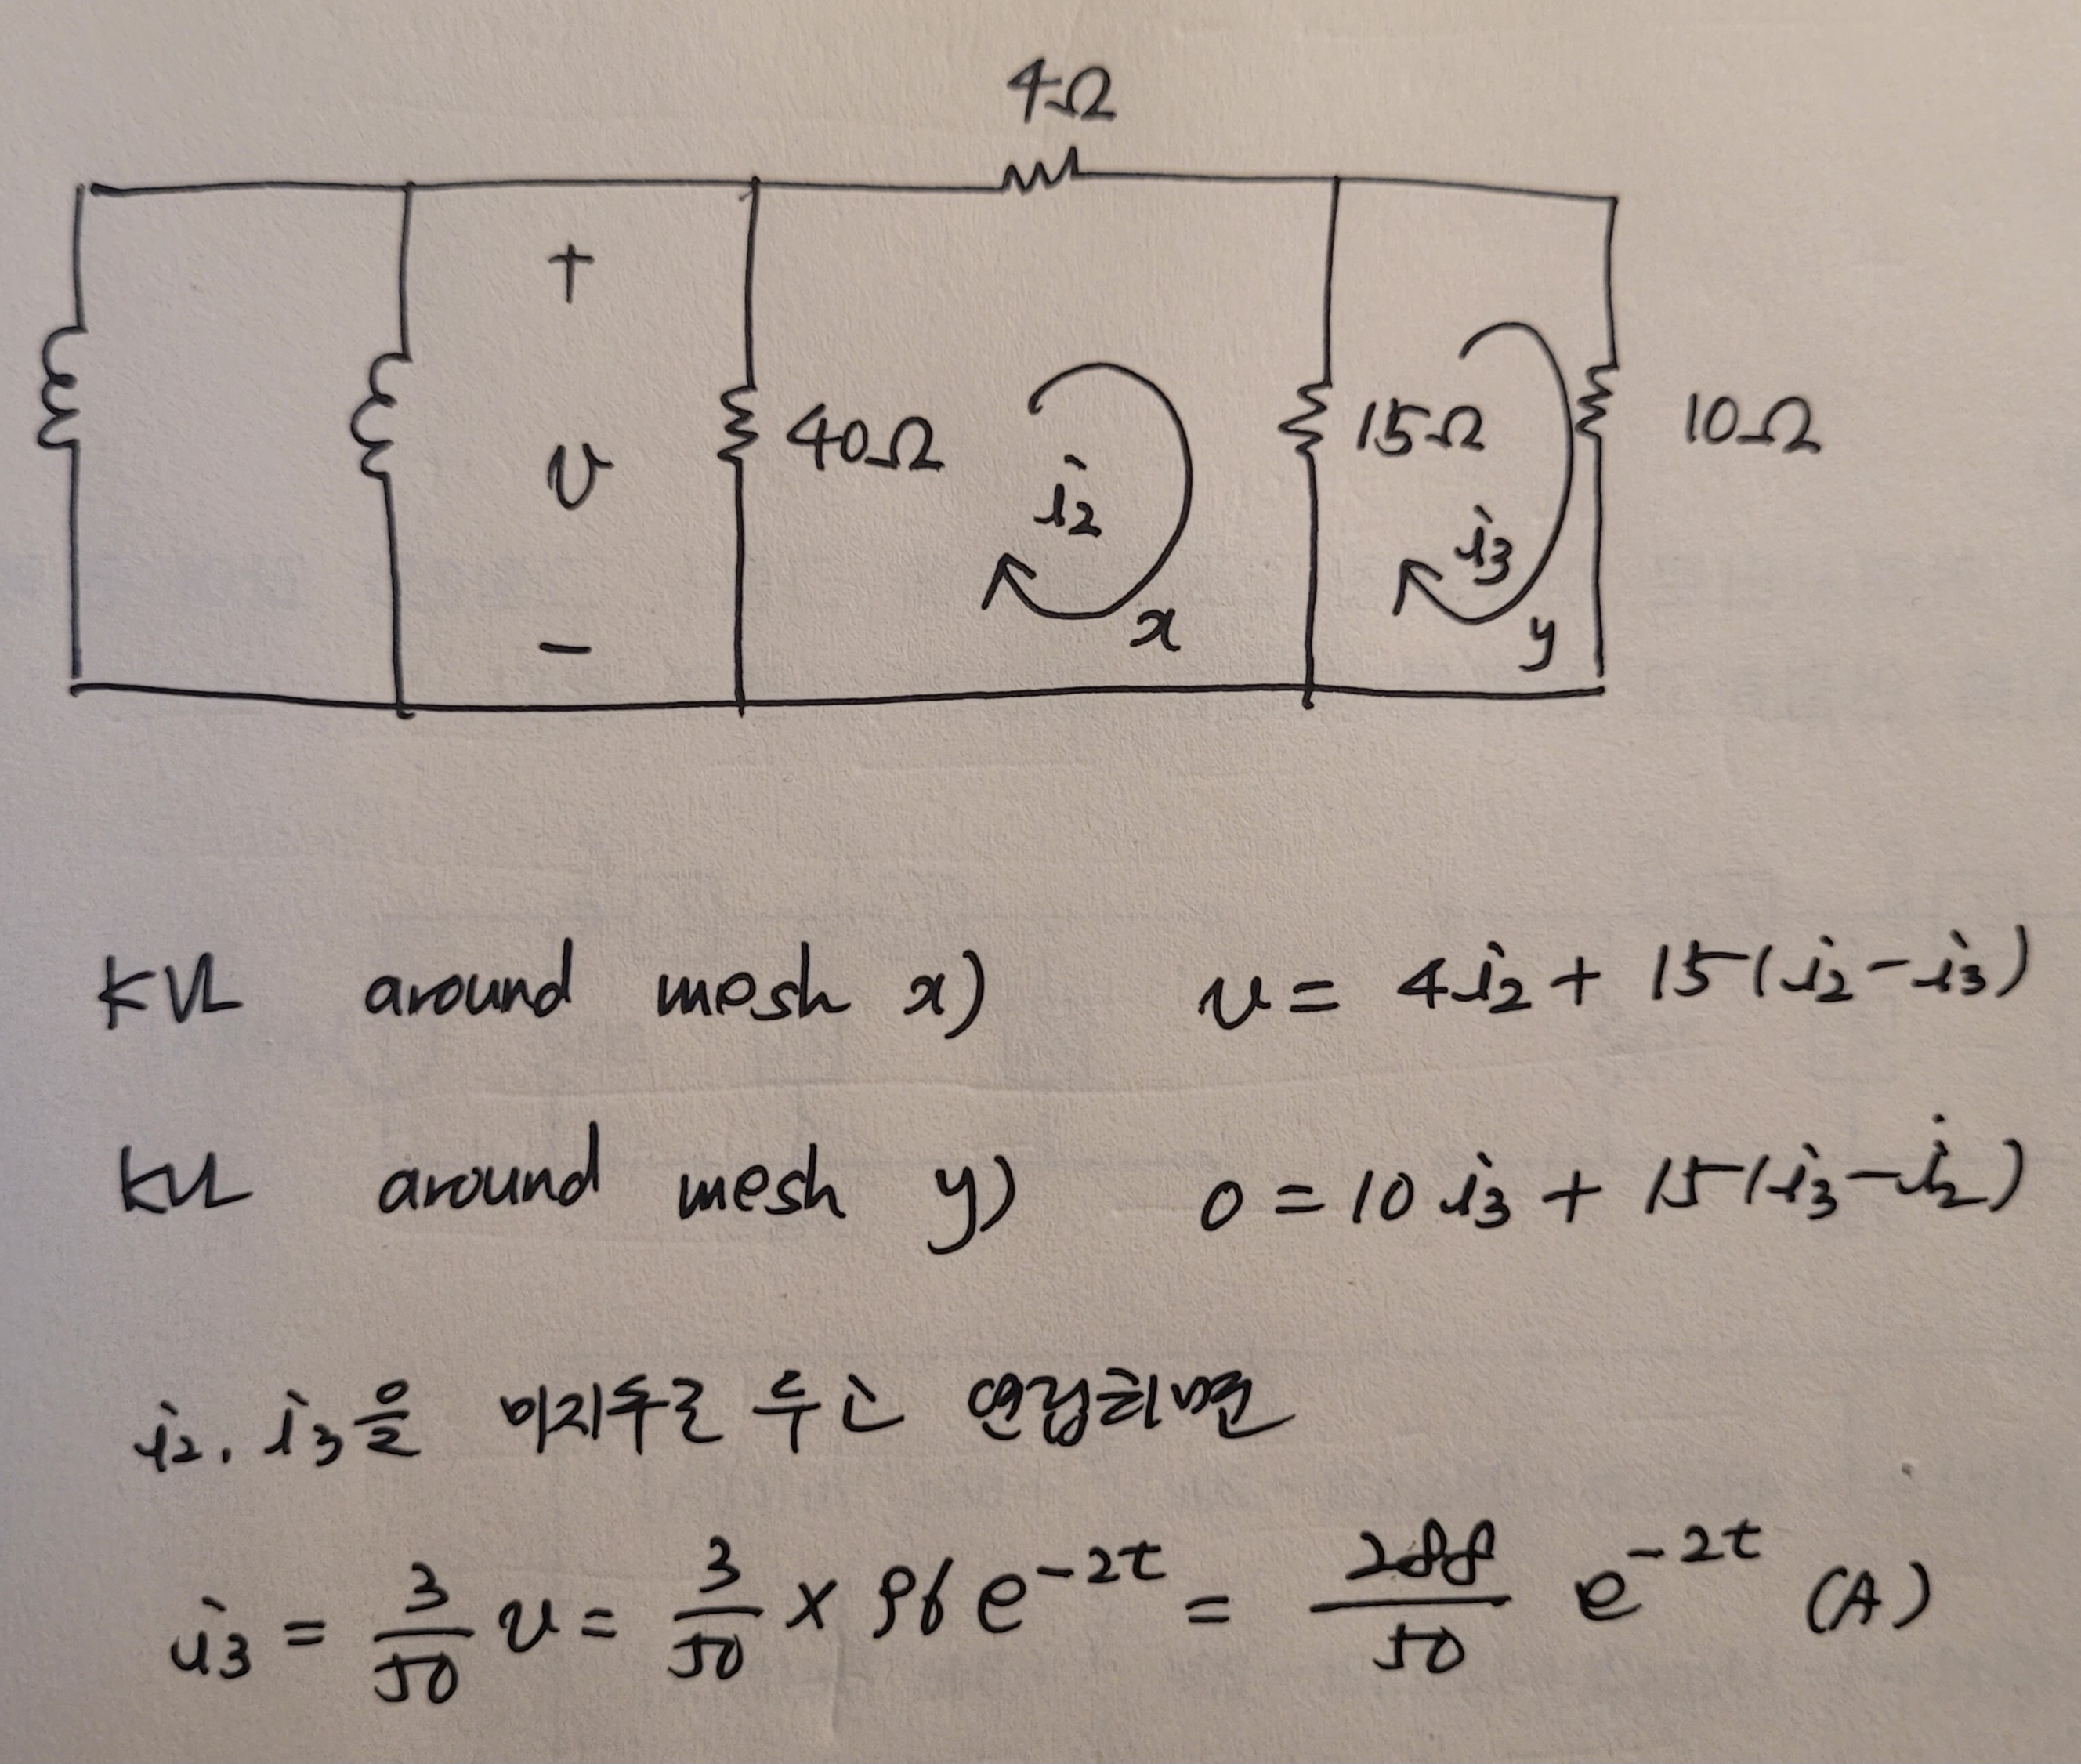 4Ω
+
v
-
40Ω
i₂
x
15Ω
i₃
y
10Ω
KVL around mesh x) v = 4i₂ + 15(i₂-i₃)
KVL around mesh y) 0 = 10i₃ + 15(i₃-i₂)
i₂, i₃을 미지수로 두고 연립하면
i₃ = 3/50 v = 3/50 × 96e^-2t = 288/50 e^-2t (A)